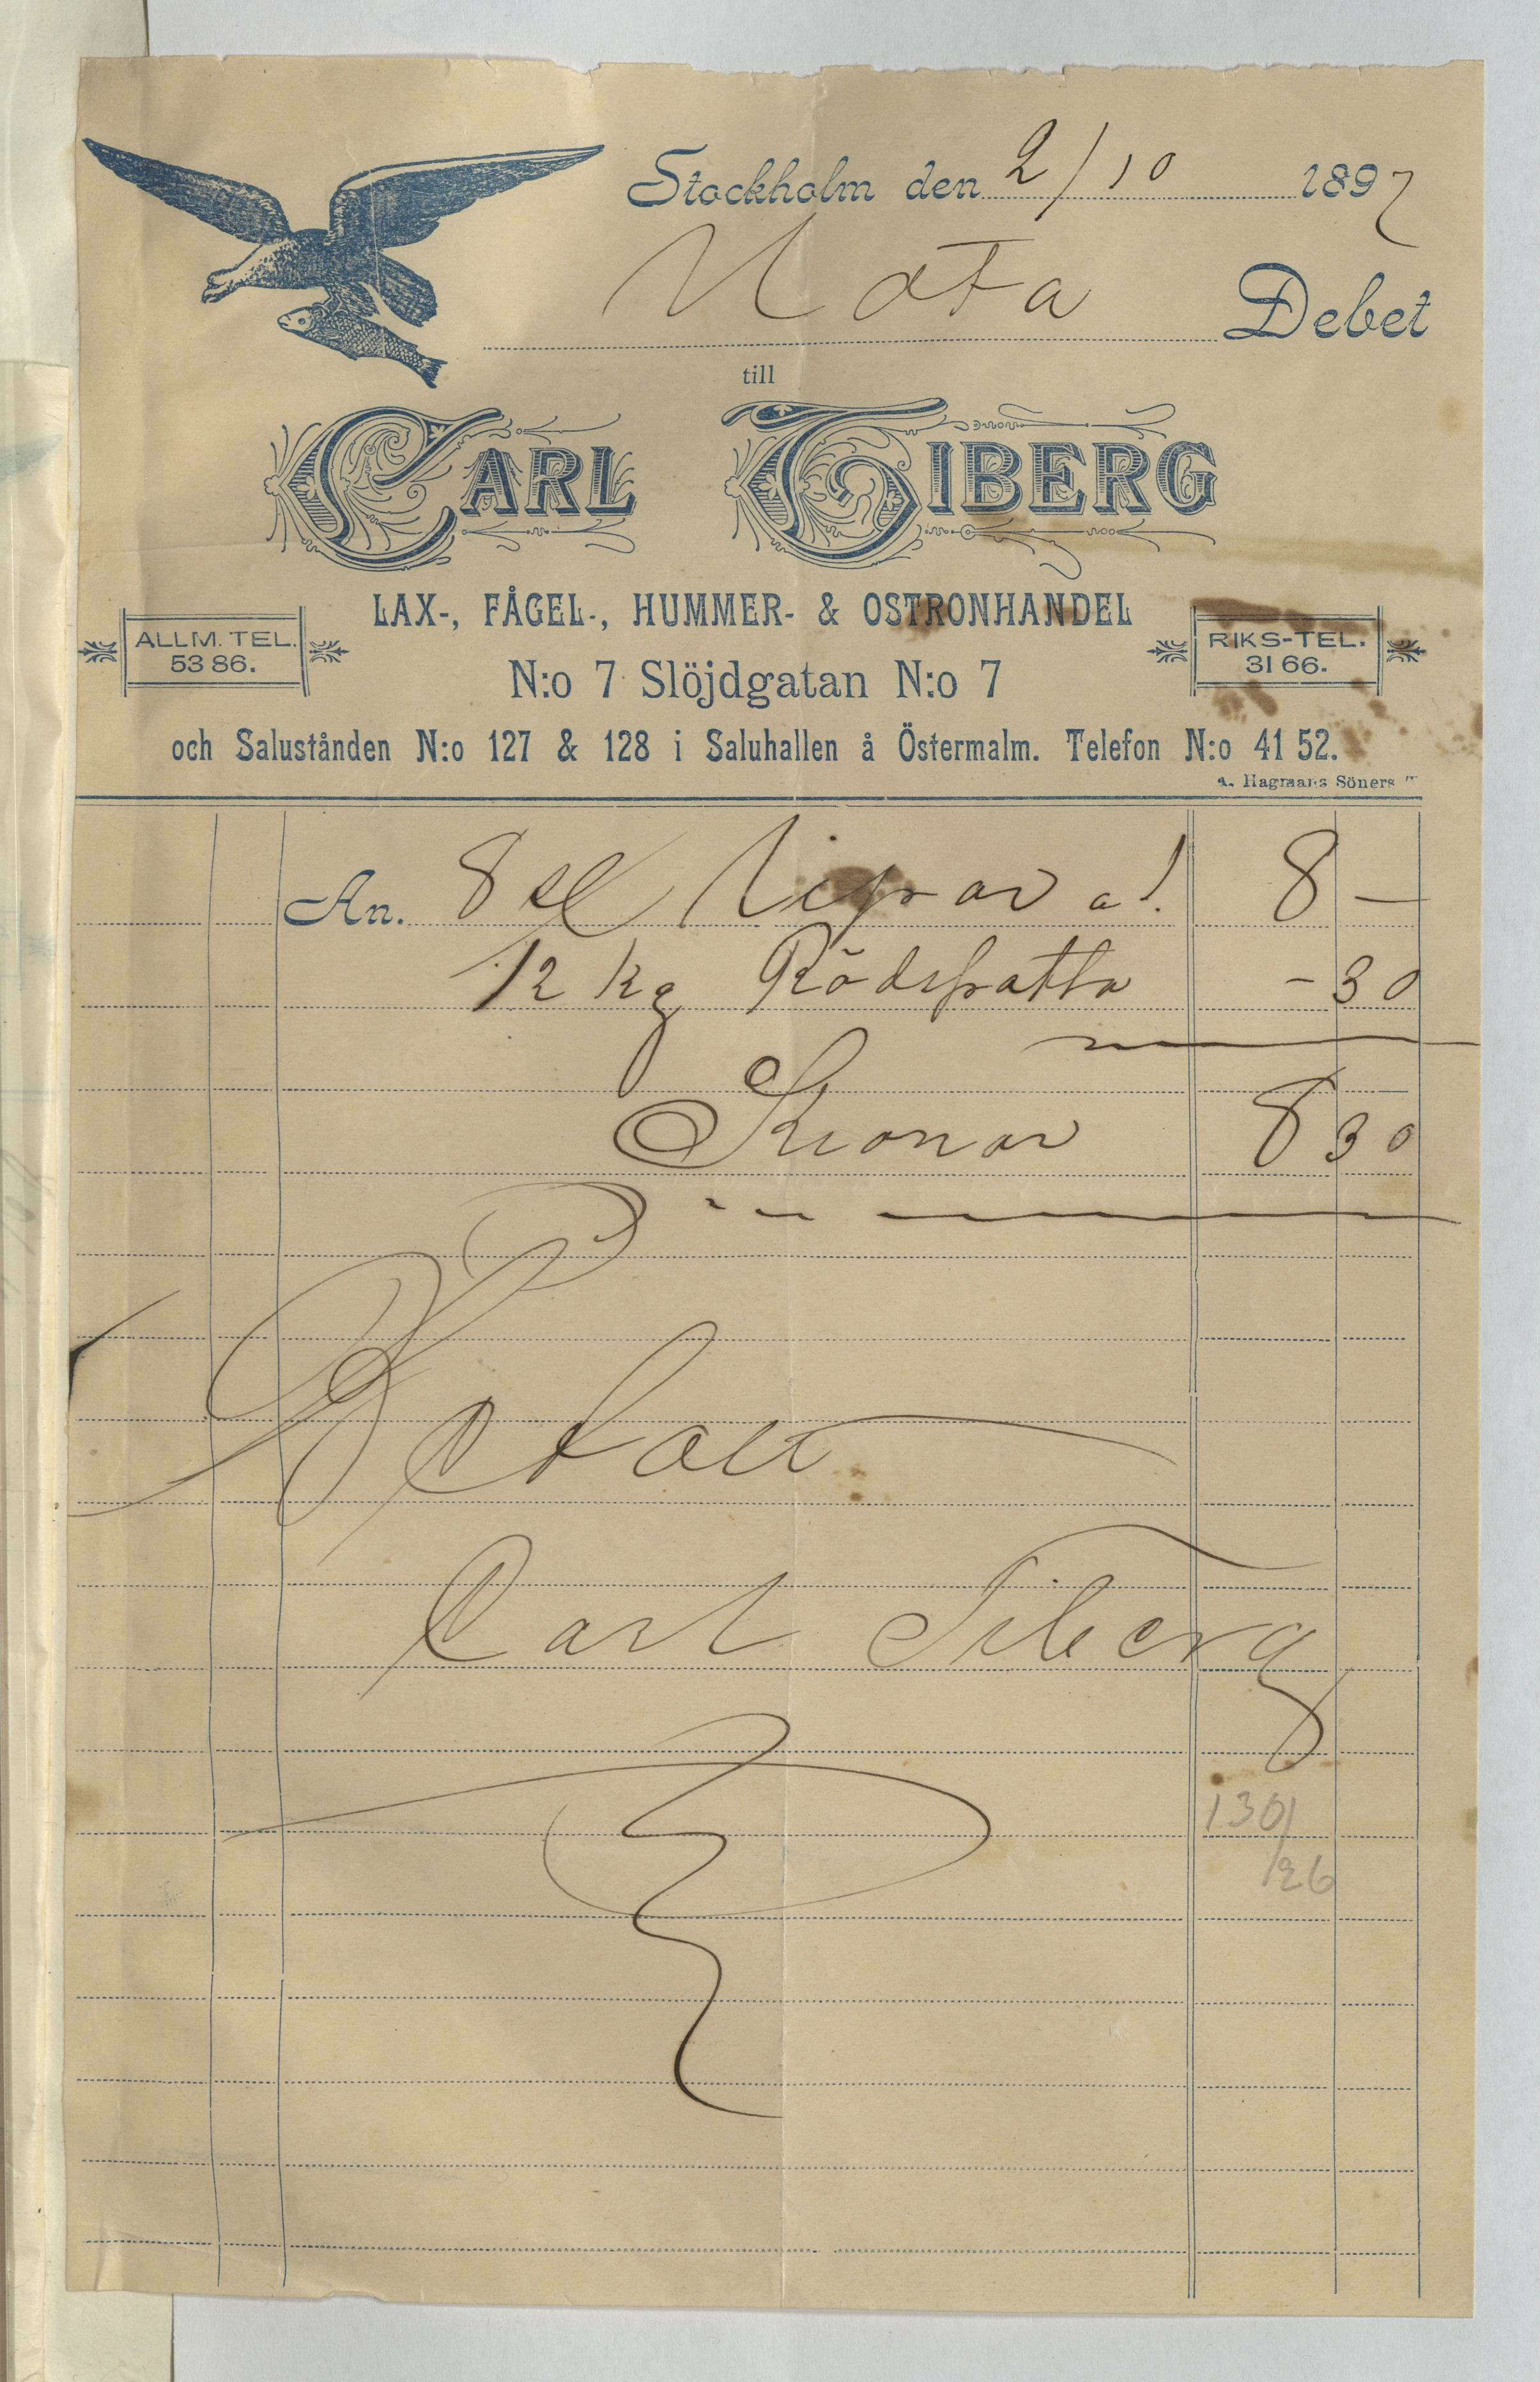 Stockholm den 2/10 1897
Nota Debet
till
CARL TIBERG
LAX-, FÅGEL-, HUMMER- & OSTRONHANDEL
ALLM. TEL. 53 86.
RIKS-TEL. 31 66.
N:o 7 Slöjdgatan N:o 7
och Salustånden N:o 127 & 128 i Saluhallen å Östermalm. Telefon N:o 41 52.
Hagmans Söners
An. 8 st Ripor a 1. 8 —
1/2 kg Rödspätta - 30
Kronor 8 30
Betalt
Carl Tiberg
130/
/26